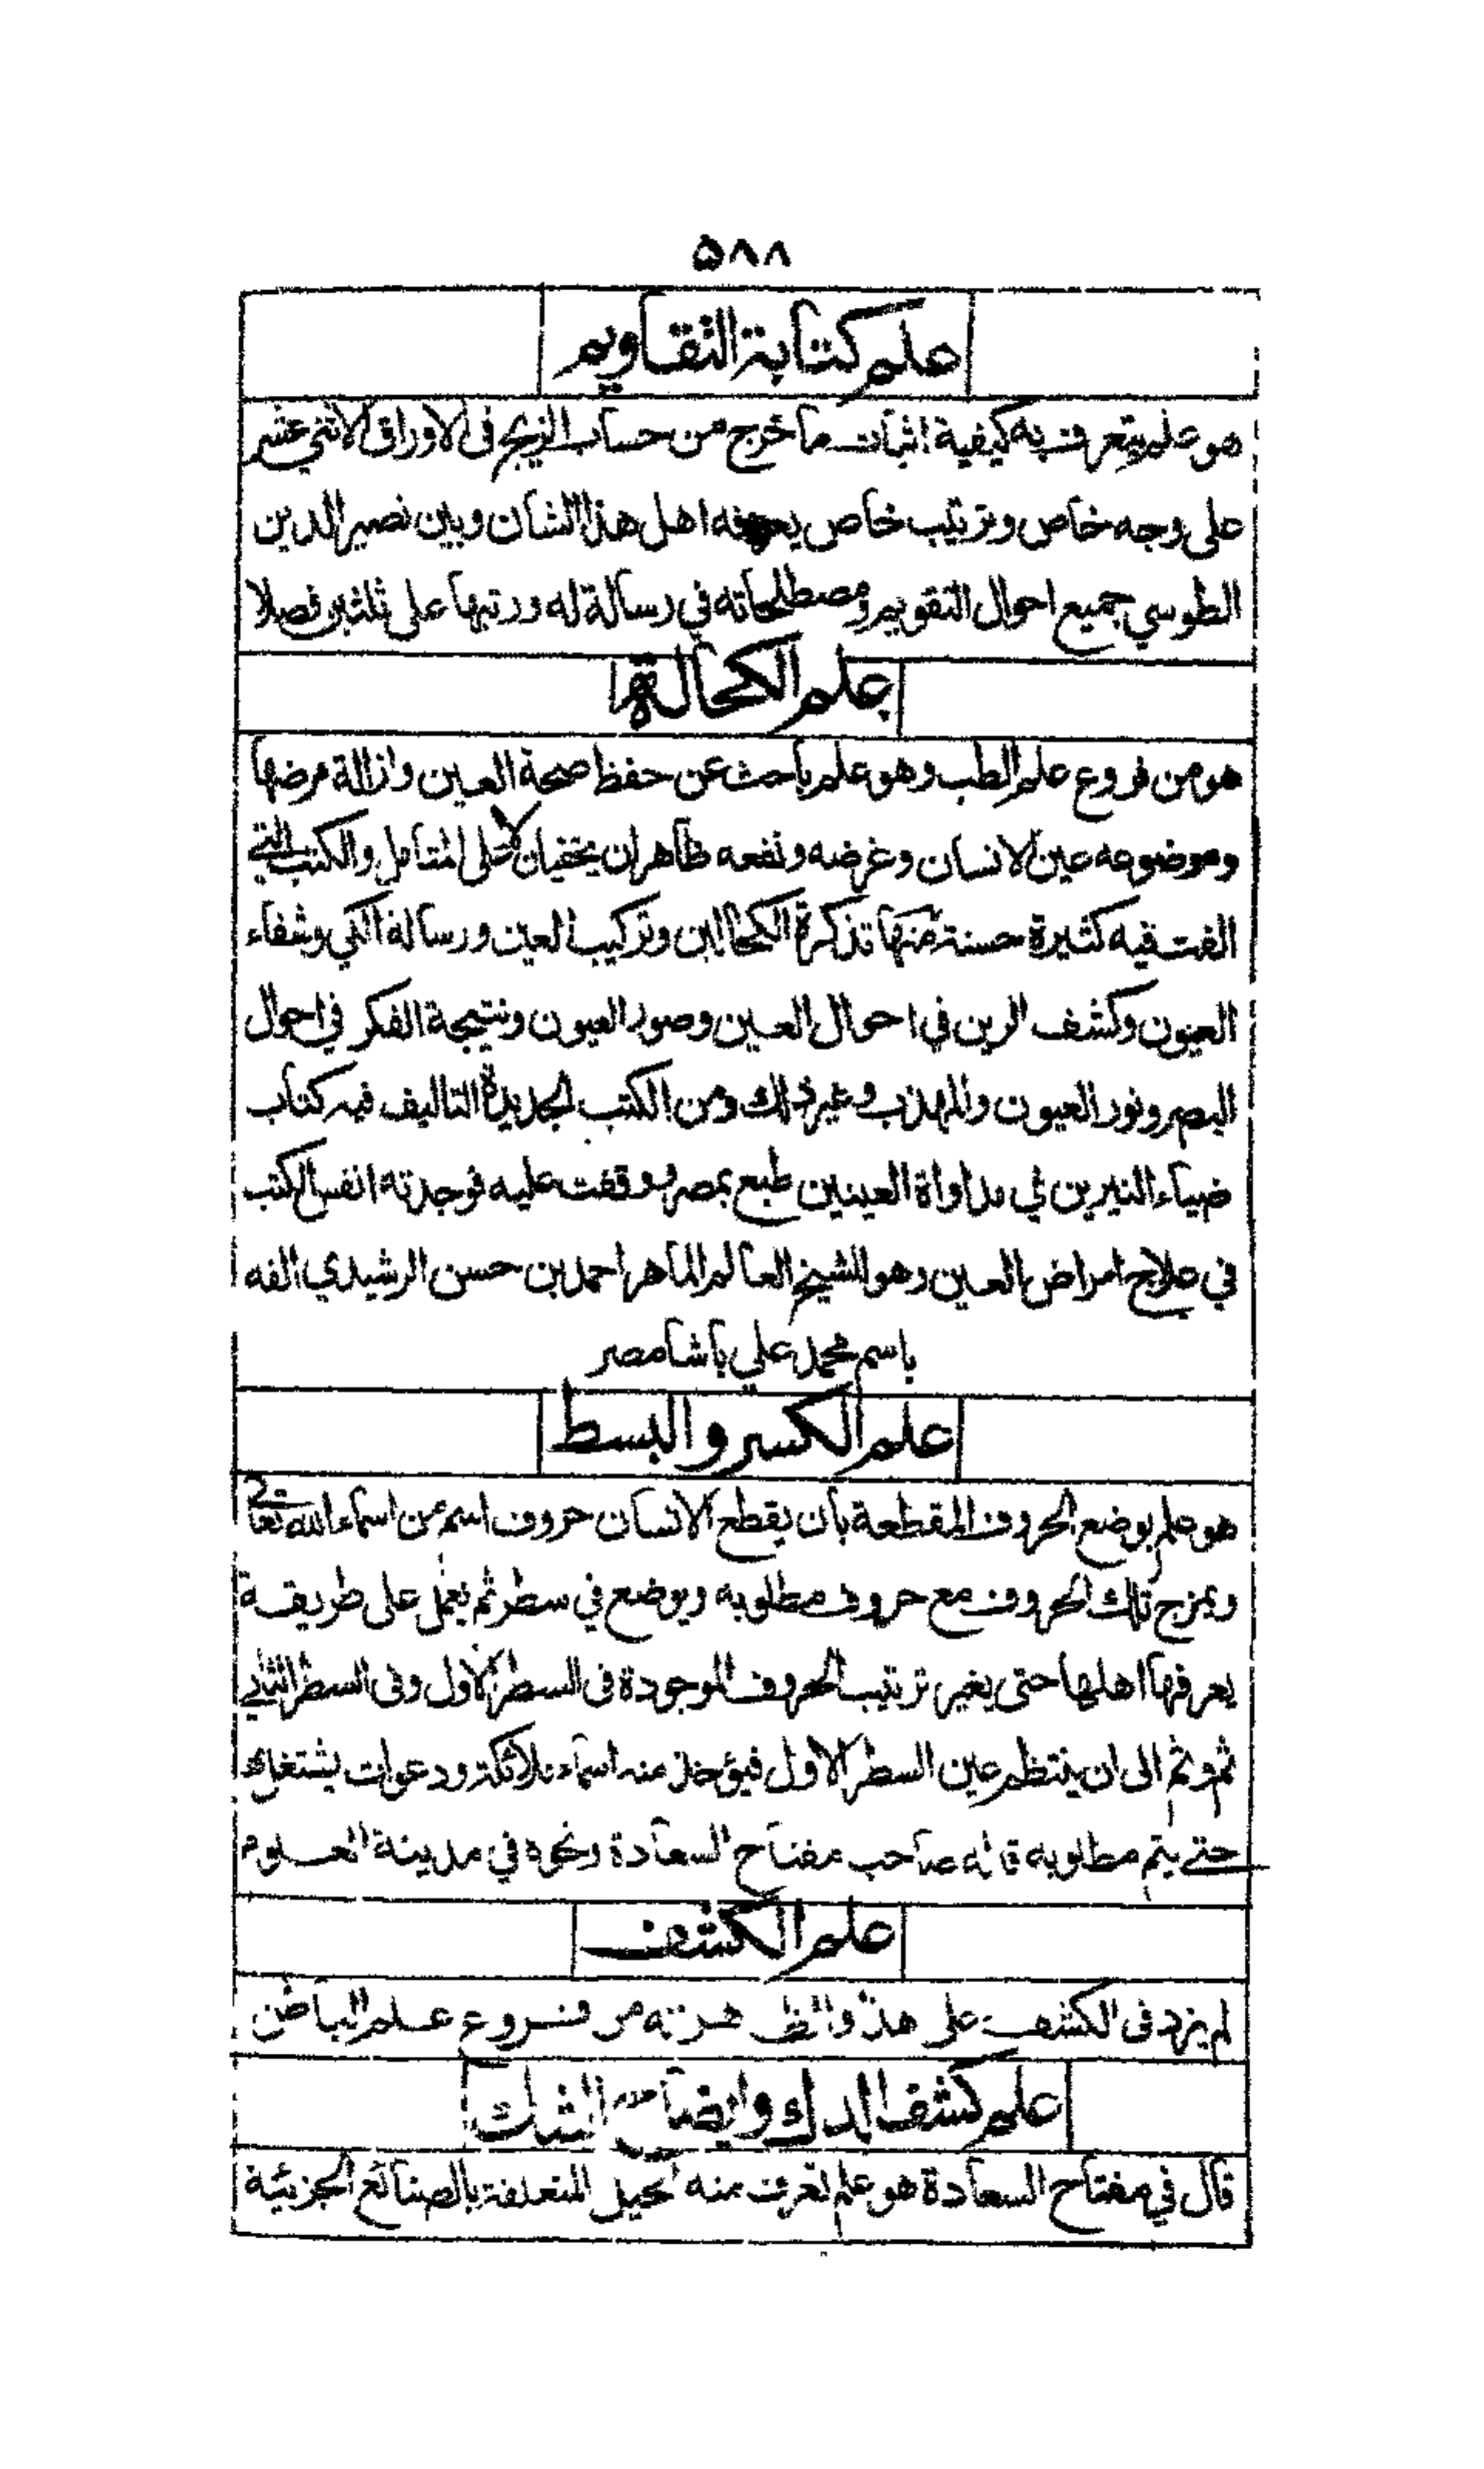 ٥٨٨
علم كتابة التقاويم
هو علم يتعرف به كيفية اثبات ما خرج من حساب الزيج فى الاوراق الاثني عشر
على وجه خاص وترتيب خاص يعرفه اهل هذا الشان وبين نصير الدين
الطوسي جميع احوال التقويم ومصطلحاته في رسالة له ورتبها على ثلثين فصلا
علم الكحالة
هو من فروع علم الطب وهو علم باحث عن حفظ صحة العين وازالة مرضها
وموضوعه عين الانسان وغرضه ونفعه ظاهران لا يخفيان على المتامل والكتب التي
الفت فيه كثيرة حسنة منها تذكرة الكحالين وتركيب العين ورسالة الكي وشفاء
العيون وكشف الرين في احوال العين وصور العيون ونتيجة الفكر في احوال
البصر ونور العيون والمهذب وغير ذلك ومن الكتب الجديدة التاليف فيه كتاب
ضياء النيرين في مداواة العينين طبع بمصر وقفت عليه فوجدته انفس الكتب
في علاج امراض العين وهو للشيخ العالم الماهر احمد بن حسن الرشيدي الفه
باسم محمد علي باشا مصر
علم الكسر والبسط
هو علم بوضع الحروف المقطعة بان يقطع الانسان حروف اسم من اسماء الله تعالى
ويمزج تلك الحروف مع حروف مطلوبه ويوضع في سطر ثم يعمل على طريقة
يعرفها اهلها حتى يغير ترتيب الحروف الموجودة فى السطر الاول وفى السطر الثاني
ثم وثم الى ان ينتظم عين السطر الاول فيؤخذ منه اسماء ملائكة ودعوات يشتغل بها
حتى يتم مطلوبه قاله صاحب مفتاح السعادة ونحوه في مدينة العلوم
علم الكشف
لم يزد فى الكشف على هذا والظاهر انه من فروع علم الباطن
علم كشف الدك وايضاح الشك
قال في مفتاح السعادة هو علم تعرف منه الحيل المتعلقة بالصنائع الجزئية